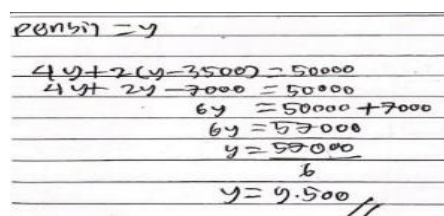 pensil = y
4y + 2(y - 3500) = 50000
4y + 2y - 7000 = 50000
6y = 50000 + 7000
6y = 57000
y = 57000
6
y = 9.500 //